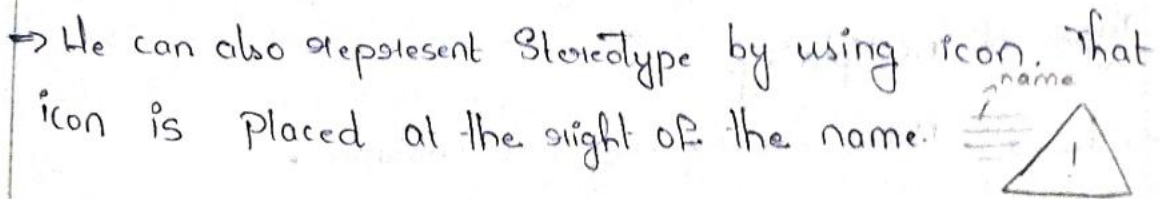 ⇒ We can also represent Stereotype by using icon. That
name
icon is Placed at the right of the name.
!